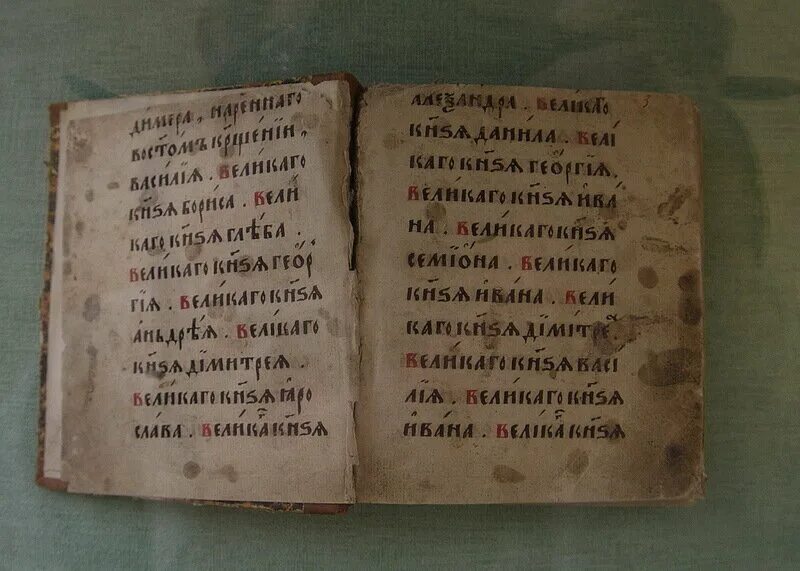 ди́мера, нарⷺеннаго
востомъ кр҃щенїи,
васи́лїѧ. вели́каго
кн҃ѕѧ бори́са. вели́
каго кн҃ѕѧ глѣ́ба.
вели́каго кн҃ѕѧ гео́р
гїѧ. вели́каго кн҃ѕѧ
аньдрѣ́ѧ. вели́каго
кн҃ѕѧ дими́треѧ.
вели́каго кн҃ѕѧ ꙗ҆ро
сла́ва. вели́каⷢ҇ кн҃ѕѧ
алеѯа́ндра. вели́каго
кн҃ѕѧ дани́ла. вели́
каго кн҃ѕѧ гео́ргїѧ.
вели́каго кн҃ѕѧ ива́
на. вели́каго кн҃ѕѧ
семїѡ́на. вели́каго
кн҃ѕѧ ива́на. вели́
каго кн҃ѕѧ дими́треⷽ
вели́каго кн҃ѕѧ васи́
лїѧ. вели́каго кн҃ѕѧ
ива́на. вели́каⷢ҇ кн҃ѕѧ